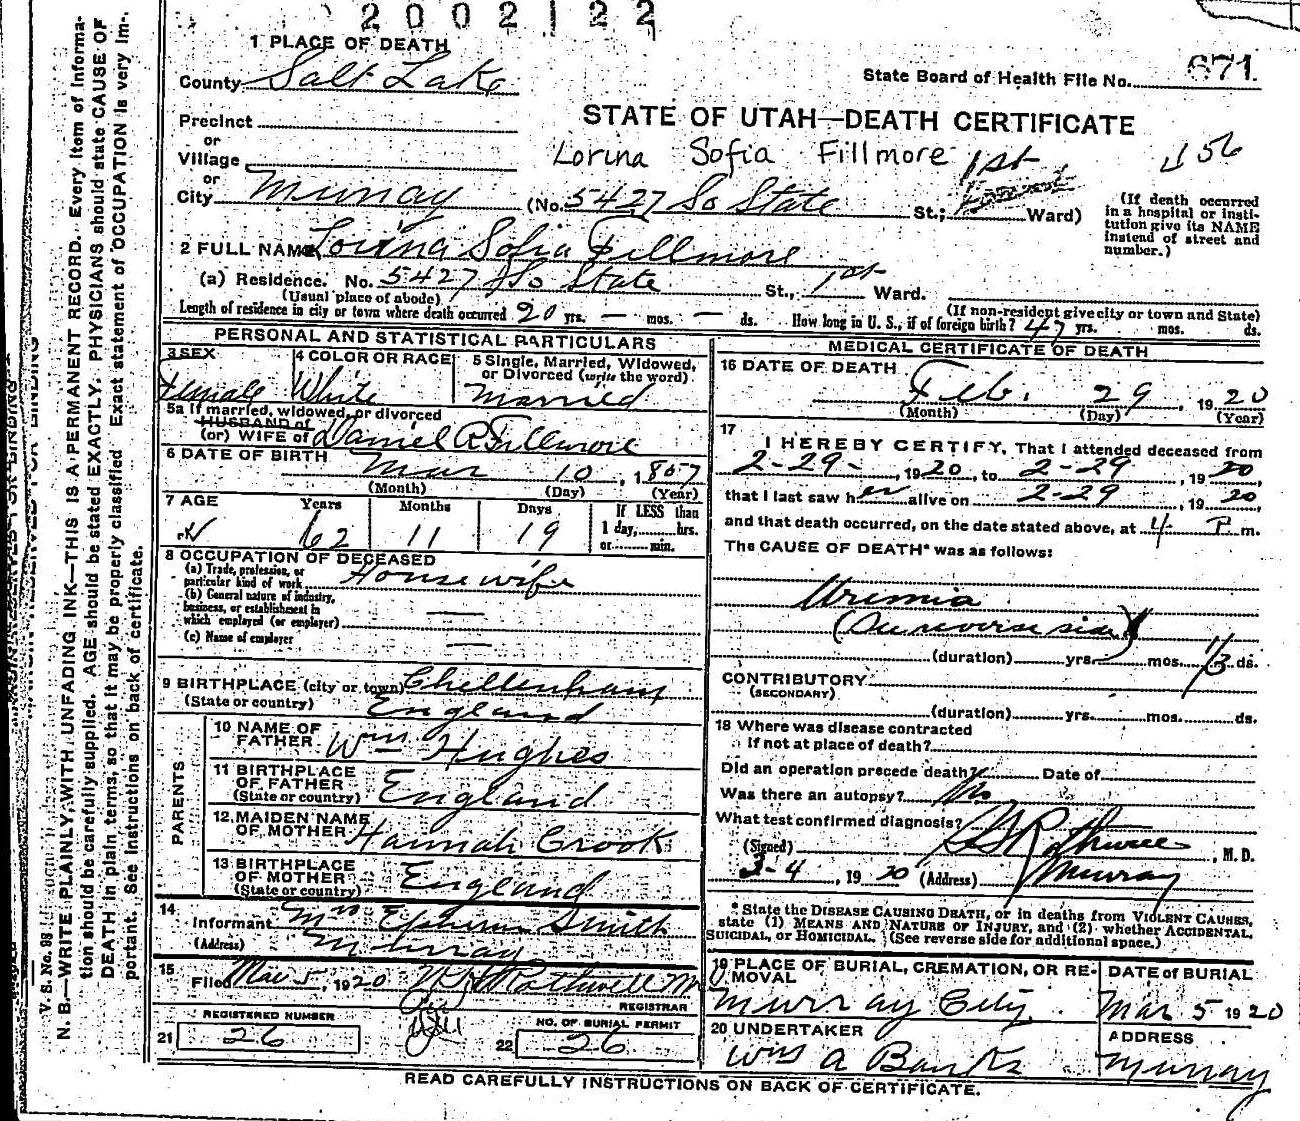 2002122
1 PLACE OF DEATH
County Salt Lake
State Board of Health File No. 671
STATE OF UTAH—DEATH CERTIFICATE
Precinct
or
Village
Lorina Sofia Fillmore
or
City Murray (No. 5427 So State St.; 1st Ward)
(If death occurred in a hospital or insti-
tution give its NAME
instead of street and
number.)
2 FULL NAME Lorina Sofia Fillmore
(a) Residence. No. 5427 So State St., 1st Ward.
(Usual place of abode)
(If non-resident give city or town and State)
Length of residence in city or town where death occurred 20 yrs. — mos. — ds. How long in U. S., if of foreign birth? 47 yrs. mos. ds.
PERSONAL AND STATISTICAL PARTICULARS
3 SEX
Female
4 COLOR OR RACE
White
5 Single, Married, Widowed,
or Divorced (write the word)
Married
5a If married, widowed, or divorced
HUSBAND of
(or) WIFE of Daniel R Fillmore
6 DATE OF BIRTH Mar 10, 1857
(Month) (Day) (Year)
7 AGE Years Months Days If LESS than
62 11 19 1 day, hrs.
or min.
8 OCCUPATION OF DECEASED
(a) Trade, profession, or
particular kind of work Housewife
(b) General nature of industry,
business, or establishment in
which employed (or employer) —
(c) Name of employer —
9 BIRTHPLACE (city or town) Chellenham
(State or country) England
PARENTS
10 NAME OF
FATHER Wm Hughes
11 BIRTHPLACE
OF FATHER England
(State or country)
12 MAIDEN NAME
OF MOTHER Hannah Crook
13 BIRTHPLACE
OF MOTHER England
(State or country)
14
Informant Mrs Ephraim Smith
(Address) Murray
15
Filed Mar 5, 1920 Rothwell
REGISTRAR
REGISTERED NUMBER
21 26
NO. OF BURIAL PERMIT
22 26
MEDICAL CERTIFICATE OF DEATH
16 DATE OF DEATH
Feb. 29, 1920
(Month) (Day) (Year)
17
I HEREBY CERTIFY, That I attended deceased from
2-29-, 1920, to 2-29, 1920,
that I last saw her alive on 2-29, 1920,
and that death occurred, on the date stated above, at 4 P m.
The CAUSE OF DEATH* was as follows:
Uremia
(See reverse side)
(duration) yrs. mos. ds.
CONTRIBUTORY
(SECONDARY)
(duration) yrs. mos. ds.
18 Where was disease contracted
if not at place of death?
Did an operation precede death? Date of
Was there an autopsy? No
What test confirmed diagnosis?
(Signed) Rothwell, M. D.
3-4, 1920 (Address) Murray
* State the DISEASE CAUSING DEATH, or in deaths from VIOLENT CAUSES,
state (1) MEANS AND NATURE OF INJURY, and (2) whether ACCIDENTAL,
SUICIDAL, or HOMICIDAL. (See reverse side for additional space.)
19 PLACE OF BURIAL, CREMATION, OR RE-
MOVAL
Murray City
DATE of BURIAL
Mar 5 1920
20 UNDERTAKER
Wm A Banks
ADDRESS
Murray
READ CAREFULLY INSTRUCTIONS ON BACK OF CERTIFICATE.
V. S. No. 98
N. B.—WRITE PLAINLY, WITH UNFADING INK—THIS IS A PERMANENT RECORD. Every item of informa-
tion should be carefully supplied. AGE should be stated EXACTLY. PHYSICIANS should state CAUSE OF
DEATH in plain terms, so that it may be properly classified. Exact statement of OCCUPATION is very im-
portant. See instructions on back of certificate.